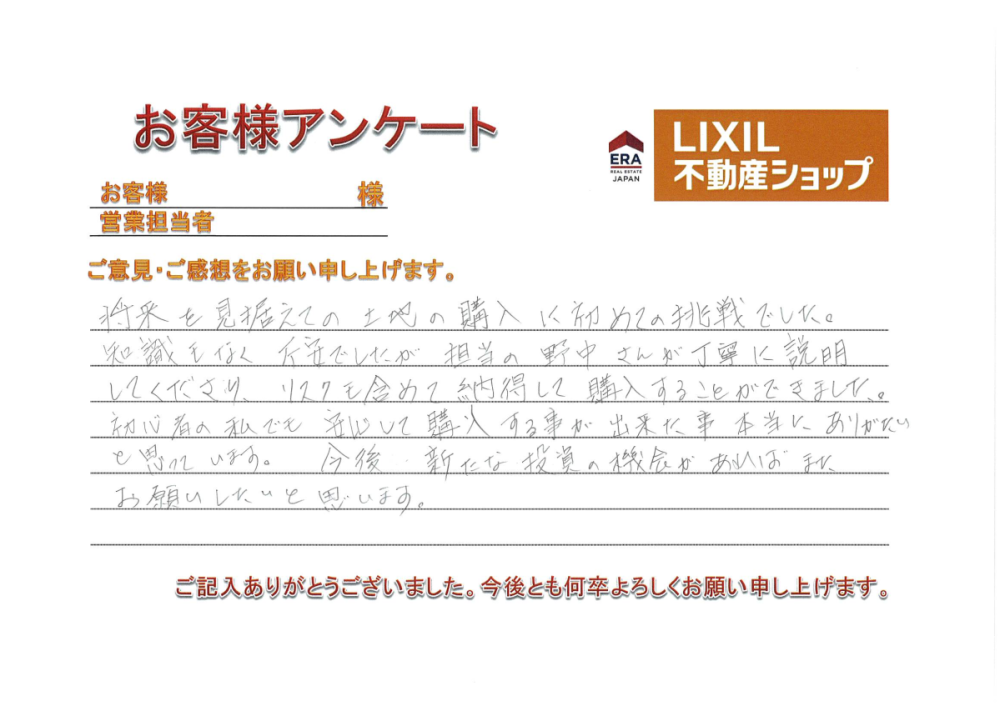 お客様アンケート
ERA
REAL ESTATE
JAPAN
LIXIL
不動産ショップ
お客様 様
営業担当者
ご意見・ご感想をお願い申し上げます。
将来を見据えての土地の購入に初めての挑戦でした。
知識もなく不安でしたが担当の野中さんが丁寧に説明
してくださり、リスクも含めて納得して購入することができました。
初心者の私でも安心して購入する事が出来た事本当にありがたい
と思っています。今後、新たな投資の機会があればまた
お願いしたいと思います。
ご記入ありがとうございました。今後とも何卒よろしくお願い申し上げます。